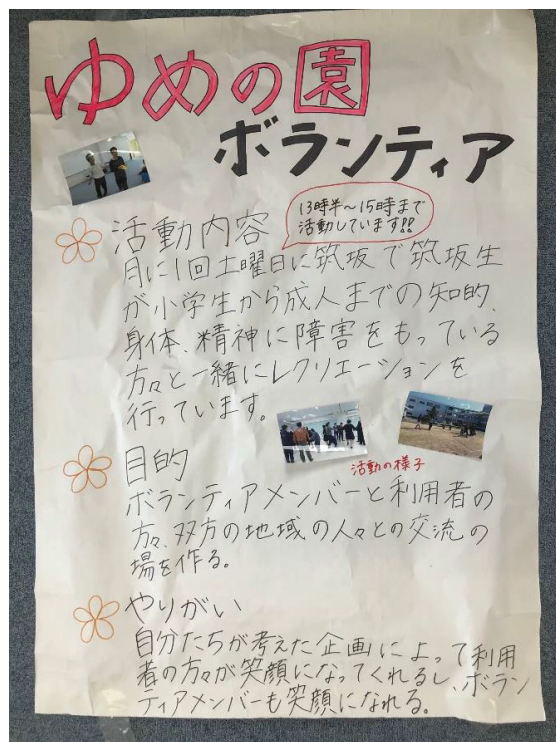 ゆめの園
ボランティア
13時半～15時まで
活動しています!!
活動内容
月に1回土曜日に筑坂で筑坂生
が小学生から成人までの知的、
身体、精神に障害をもっている
方々と一緒にレクリエーションを
行っています。
活動の様子
目的
ボランティアメンバーと利用者の
方々、双方の地域の人々との交流の
場を作る。
やりがい
自分たちが考えた企画によって利用
者の方々が笑顔になってくれるし、ボラン
ティアメンバーも笑顔になれる。